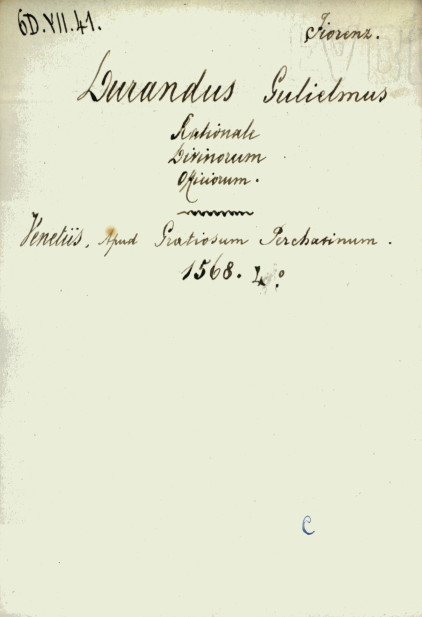 6D.VII.41.
Fiorenz.
Durandus Gulielmus
Rationale
Divinorum
Officiorum.
Venetiis, Apud Gratiosum Perchacinum.
1568. 4.º
C